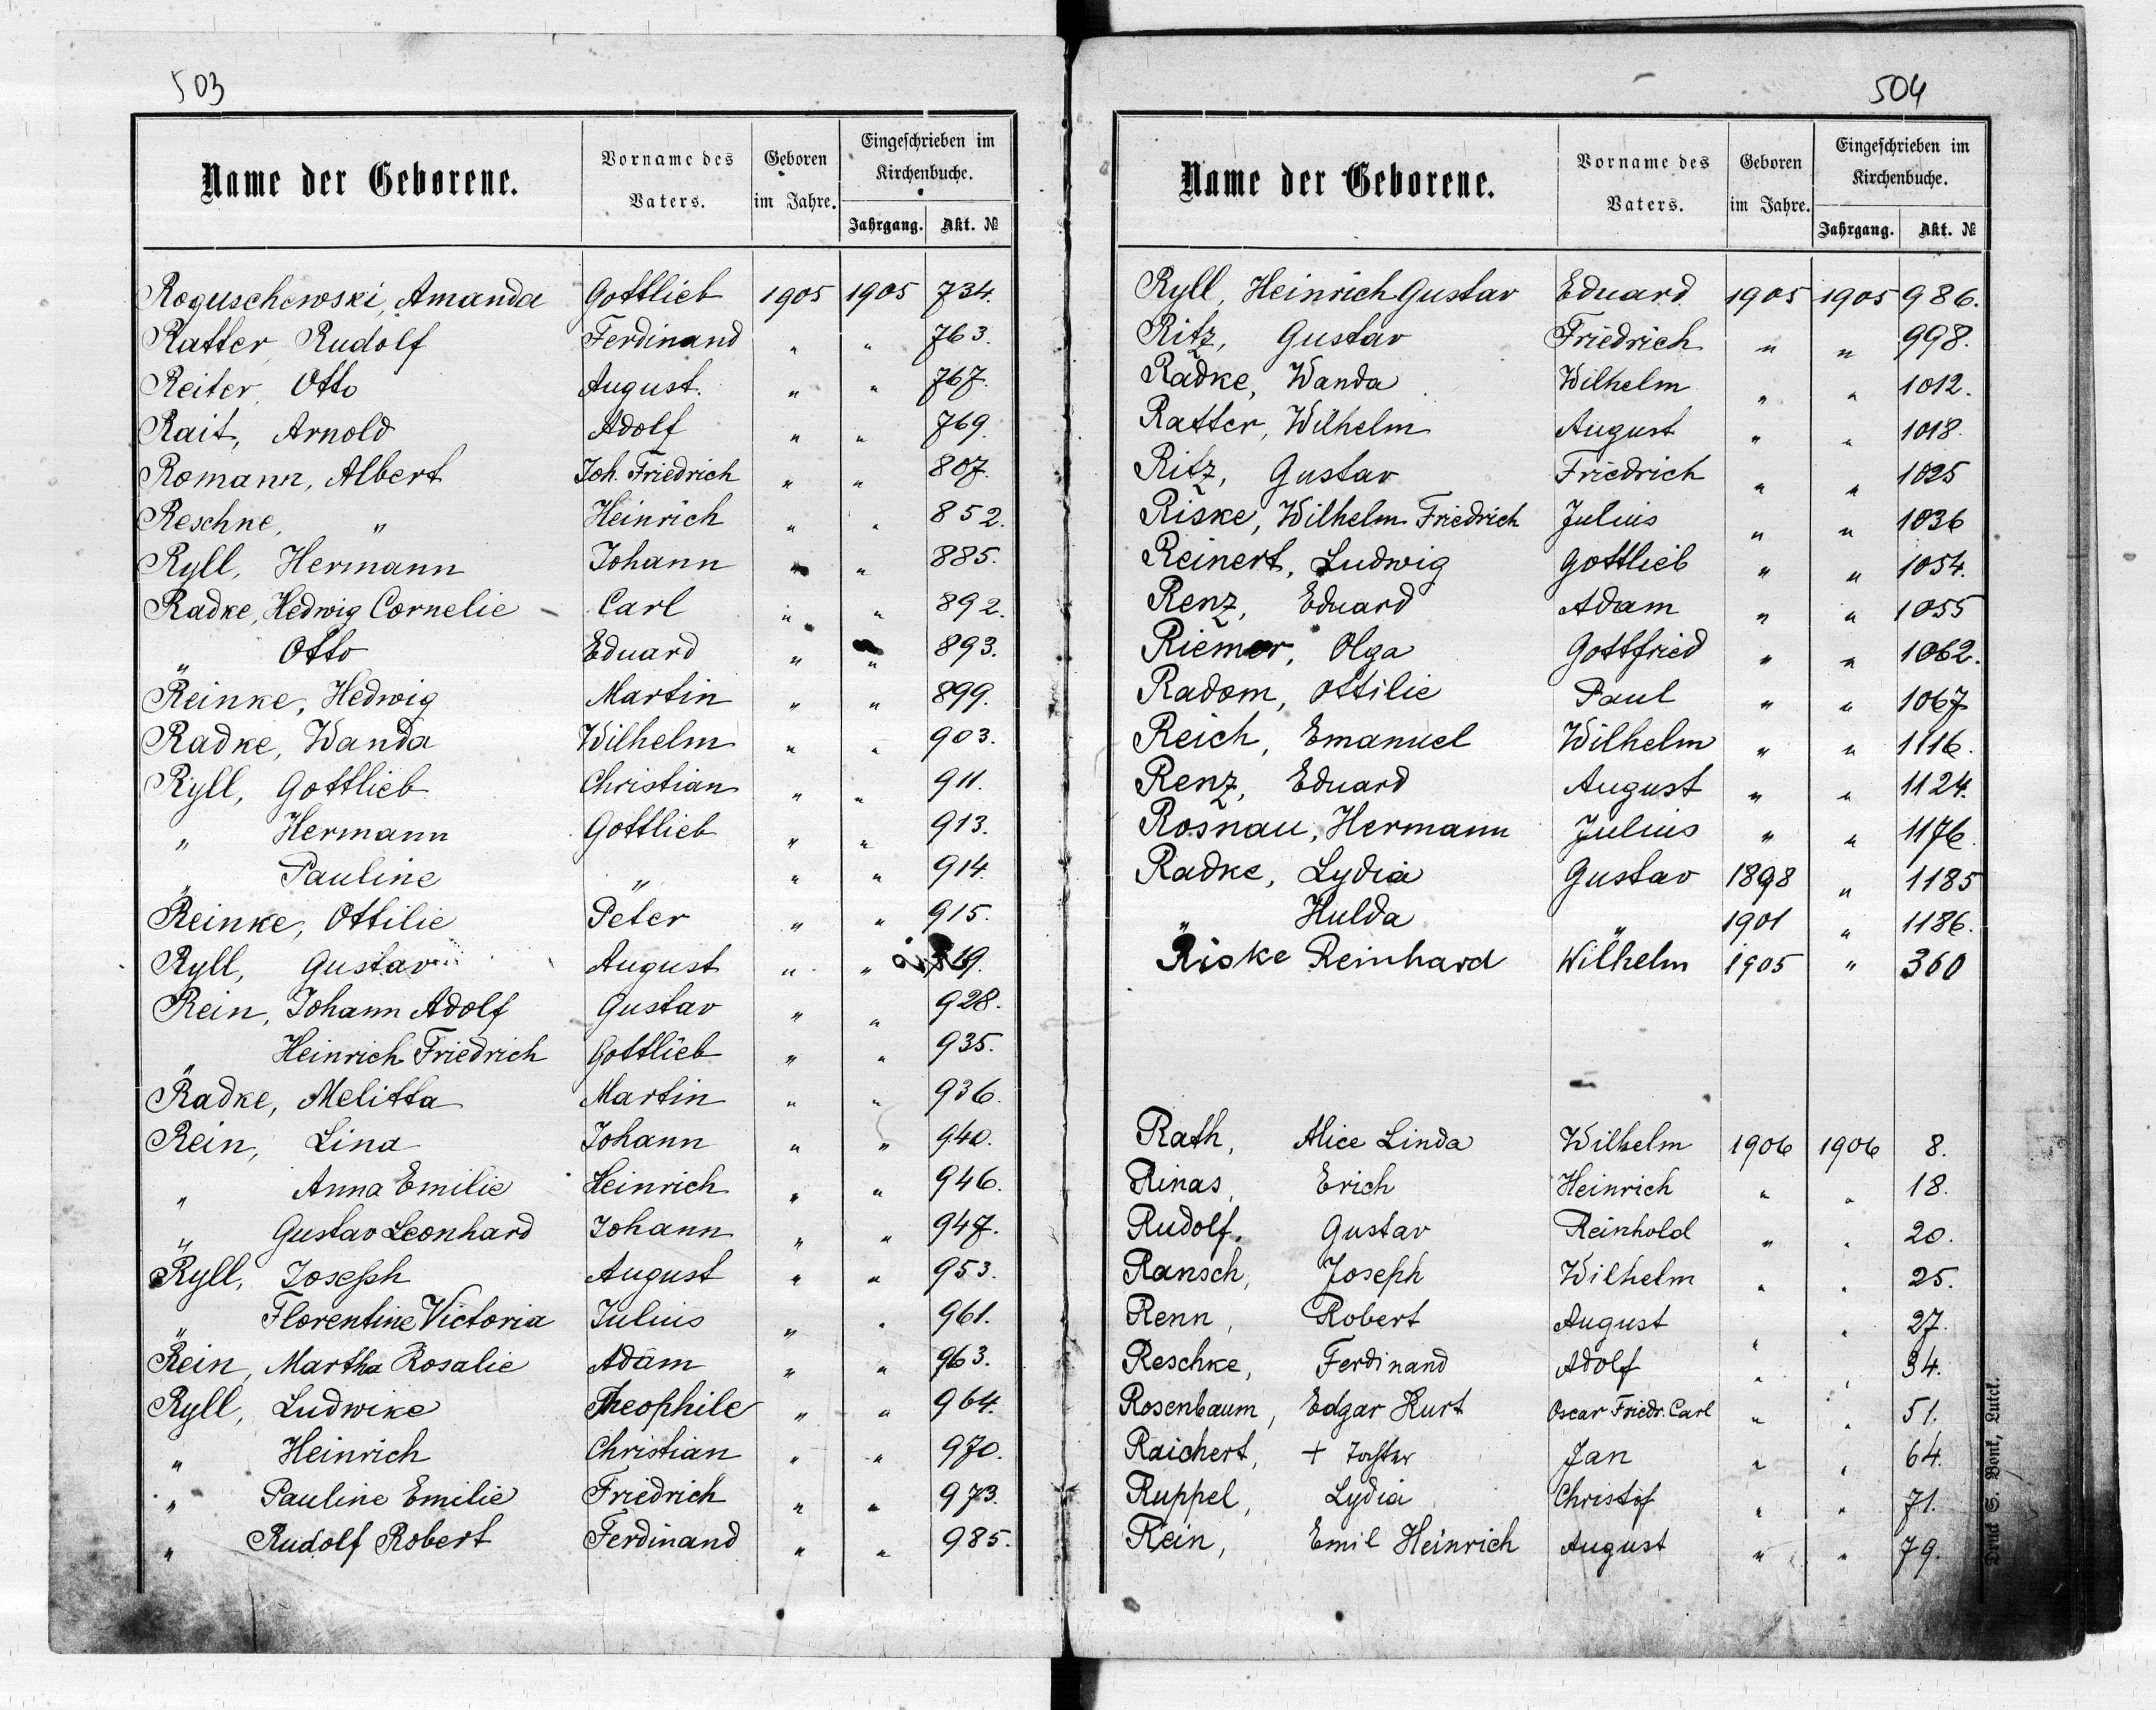 503
Name der Geborene. Vorname des Vaters. Geboren im Jahre. Eingeschrieben im Kirchenbuche. Jahrgang. Akt. №
Roguschewski, Amanda Gottlieb 1905 1905 734.
Ratter, Rudolf Ferdinand " " 763.
Reiter, Otto August. " " 767.
Rait, Arnold Adolf " " 769.
Romann, Albert Joh. Friedrich " " 807.
Reschke, " Heinrich " " 852.
Ryll, Hermann Johann " " 885.
Radke, Hedwig Cornelie Carl " " 892.
" Otto Eduard " " 893.
Reinke, Hedwig Martin " " 899.
Radke, Wanda Wilhelm " " 903.
Ryll, Gottlieb Christian " " 911.
" Hermann Gottlieb " " 913.
" Pauline " " " 914.
Reinke, Ottilie Peter " " 915.
Ryll, Gustav August " "
Rein, Johann Adolf Gustav " " 928.
" Heinrich Friedrich Gottlieb " " 935.
Radke, Melitta Martin " " 936.
Rein, Lina Johann " " 940.
" Anna Emilie Heinrich " " 946.
" Gustav Leonhard Johann " " 947.
Ryll, Joseph August " " 953.
" Florentine Victoria Julius " " 961.
Rein, Martha Rosalie Adam " " 963.
Ryll, Ludwike Theophile " " 964.
" Heinrich Christian " " 970.
" Pauline Emilie Friedrich " " 973.
" Rudolf Robert Ferdinand " " 985.
504
Name der Geborene. Vorname des Vaters. Geboren im Jahre. Eingeschrieben im Kirchenbuche. Jahrgang. Akt. №
Ryll, Heinrich Gustav Eduard 1905 1905 986.
Ritz, Gustav Friedrich " " 998.
Radke, Wanda Wilhelm " " 1012.
Ratter, Wilhelm August " " 1018.
Ritz, Gustav Friedrich " " 1025
Riske, Wilhelm Friedrich Julius " " 1036
Reinert, Ludwig Gottlieb " " 1054.
Renz, Eduard Adam " " 1055
Riemer, Olga Gottfried " " 1062.
Radom, Ottilie Paul " " 1067
Reich, Emanuel Wilhelm " " 1116.
Renz, Eduard August " " 1124.
Rosnau, Hermann Julius " " 1176.
Radke, Lydia Gustav 1898 " 1185
" Hulda " 1901 " 1186.
Riske Reinhard Wilhelm 1905 " 360
Rath, Alice Linda Wilhelm 1906 1906 8.
Rinas, Erich Heinrich " " 18.
Rudolf, Gustav Reinhold " " 20.
Ransch, Joseph Wilhelm " " 25.
Renn, Robert August " " 27.
Reschke, Ferdinand Adolf " " 34.
Rosenbaum, Edgar Kurt Oscar Friedr. Carl " " 51.
Raichert, + Tochter Jan " " 64.
Ruppel, Lydia Christof " " 71.
Rein, Emil Heinrich August " " 79.
Druck S. Bonk, Lutck.